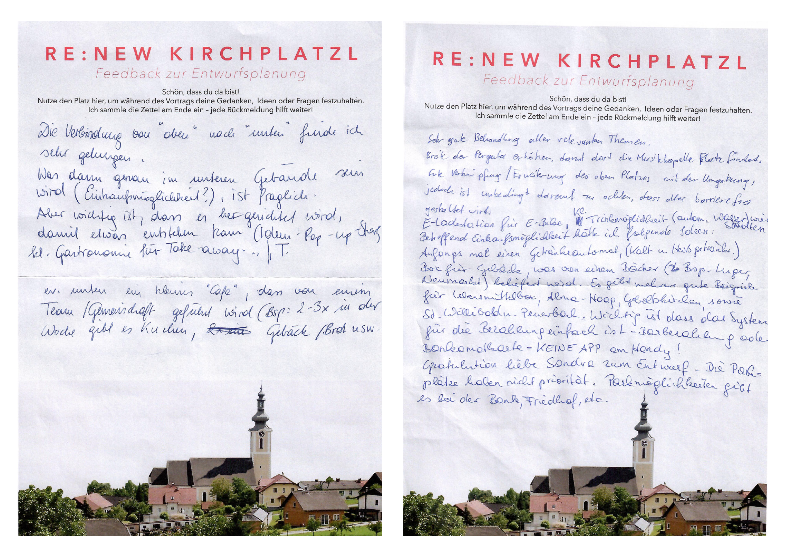 RE:NEW KIRCHPLATZL
Feedback zur Entwurfsplanung
Schön, dass du da bist!
Nutze den Platz hier, um während des Vortrags deine Gedanken, Ideen oder Fragen festzuhalten.
Ich sammle die Zettel am Ende ein - jede Rückmeldung hilft weiter!
Die Verbindung von "oben" nach "unten" finde ich
sehr gelungen.
Was dann genau im unteren Gebäude sein
wird (Einkaufsmöglichkeit?), ist fraglich.
Aber wichtig ist, dass es hergerichtet wird,
damit etwas entstehen kann (Ideen: Pop-up
Gastronomie für Take away
ev. unten ein kleines "Café", das von einem
Team/Gemeinschaft geführt wird (Bsp: 2-3x in der
Woche gibt es Kuchen, Gebäck/Brot usw
RE:NEW KIRCHPLATZL
Feedback zur Entwurfsplanung
Schön, dass du da bist!
Nutze den Platz hier, um während des Vortrags deine Gedanken, Ideen oder Fragen festzuhalten.
Ich sammle die Zettel am Ende ein - jede Rückmeldung hilft weiter!
Sehr gute Behandlung aller relevanten Themen.
der Pergola erhöhen, damit dort die Musikkapelle Platz findet.
Gute Verknüpfung/Erweiterung des oben Platzes mit der Umgebung,
jedoch ist unbedingt darauf zu achten, dass alles barrierefrei
gestaltet wird.
E-Ladestation für E-Bike,
Betreffend Einkaufsmöglichkeit hätte ich folgende Ideen:
Anfangs mal einen Getränkeautomat, (Kalt u.
Box für Gebäck, was von einem Bäcker (zB
beliefert wird. Es gibt mehrere gute Beispiele
für Lebensmittelbox, sowie
Wichtig ist dass das System
für die Bezahlung einfach ist - Barbezahlung oder
Bankomatkarte - KEINE APP am Handy!
Gratulation liebe Sandra zum Entwurf - Die Park-
plätze haben nicht priorität. Parkmöglichkeiten gibt
es bei der Bank, Friedhof, etc.